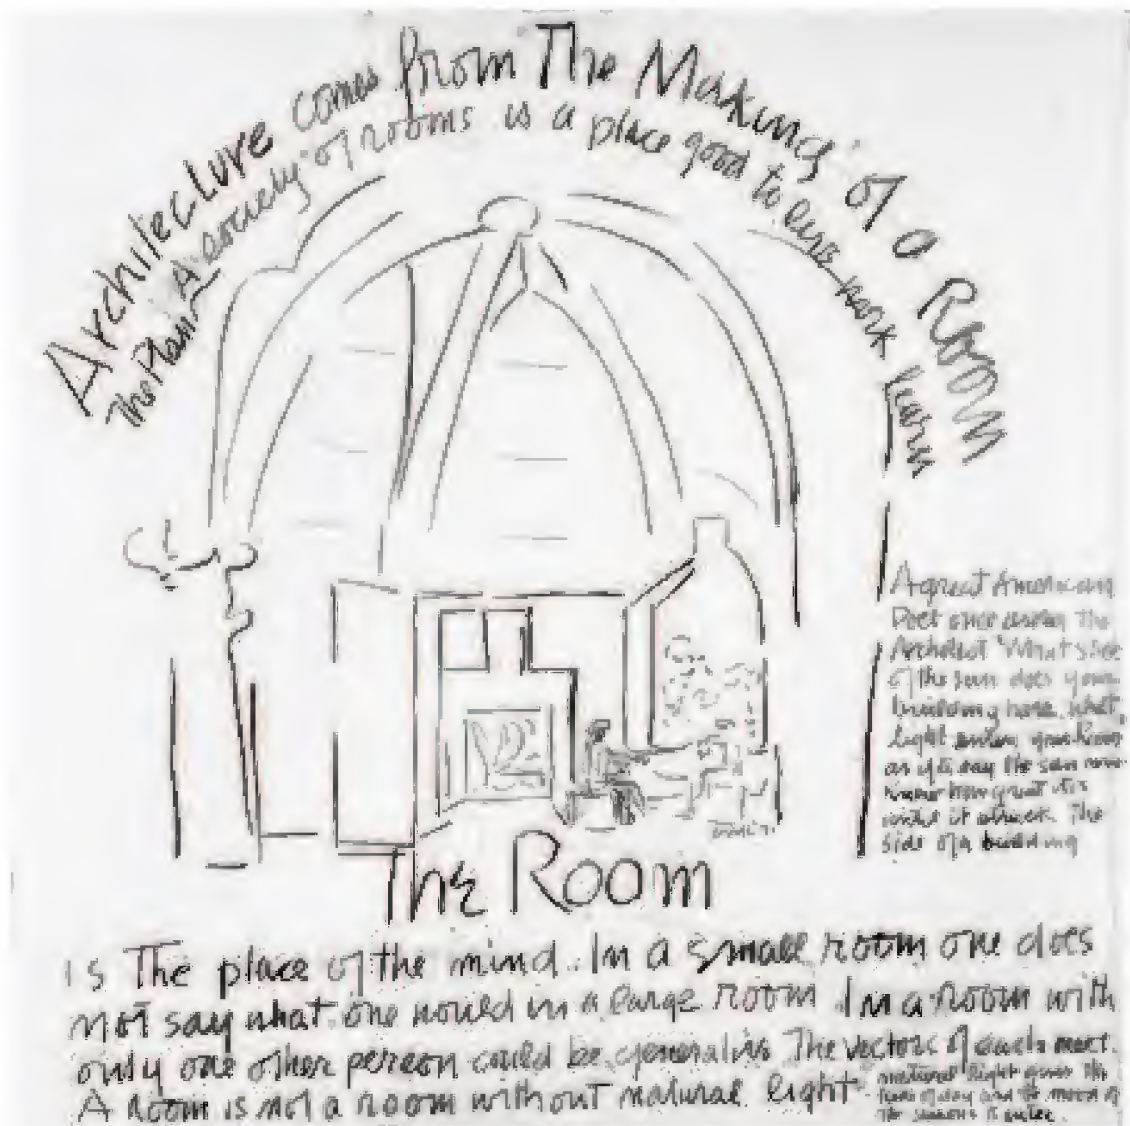 Architecture comes from The Making of a Room
The Plan A society of rooms is a place good to live work learn
A great American
Poet once asked the
Architect 'What slice
of the sun does your
building have, what
light enters your room
as if to say the sun never
knew how great it is
until it struck The
side of a building
The Room
is The place of the mind. In a small room one does
not say what one would in a large room. In a room with
only one other person could be generative The vectors of each meet.
A room is not a room without natural light
natural light gives the
time of day and the mood of
the seasons to enter.